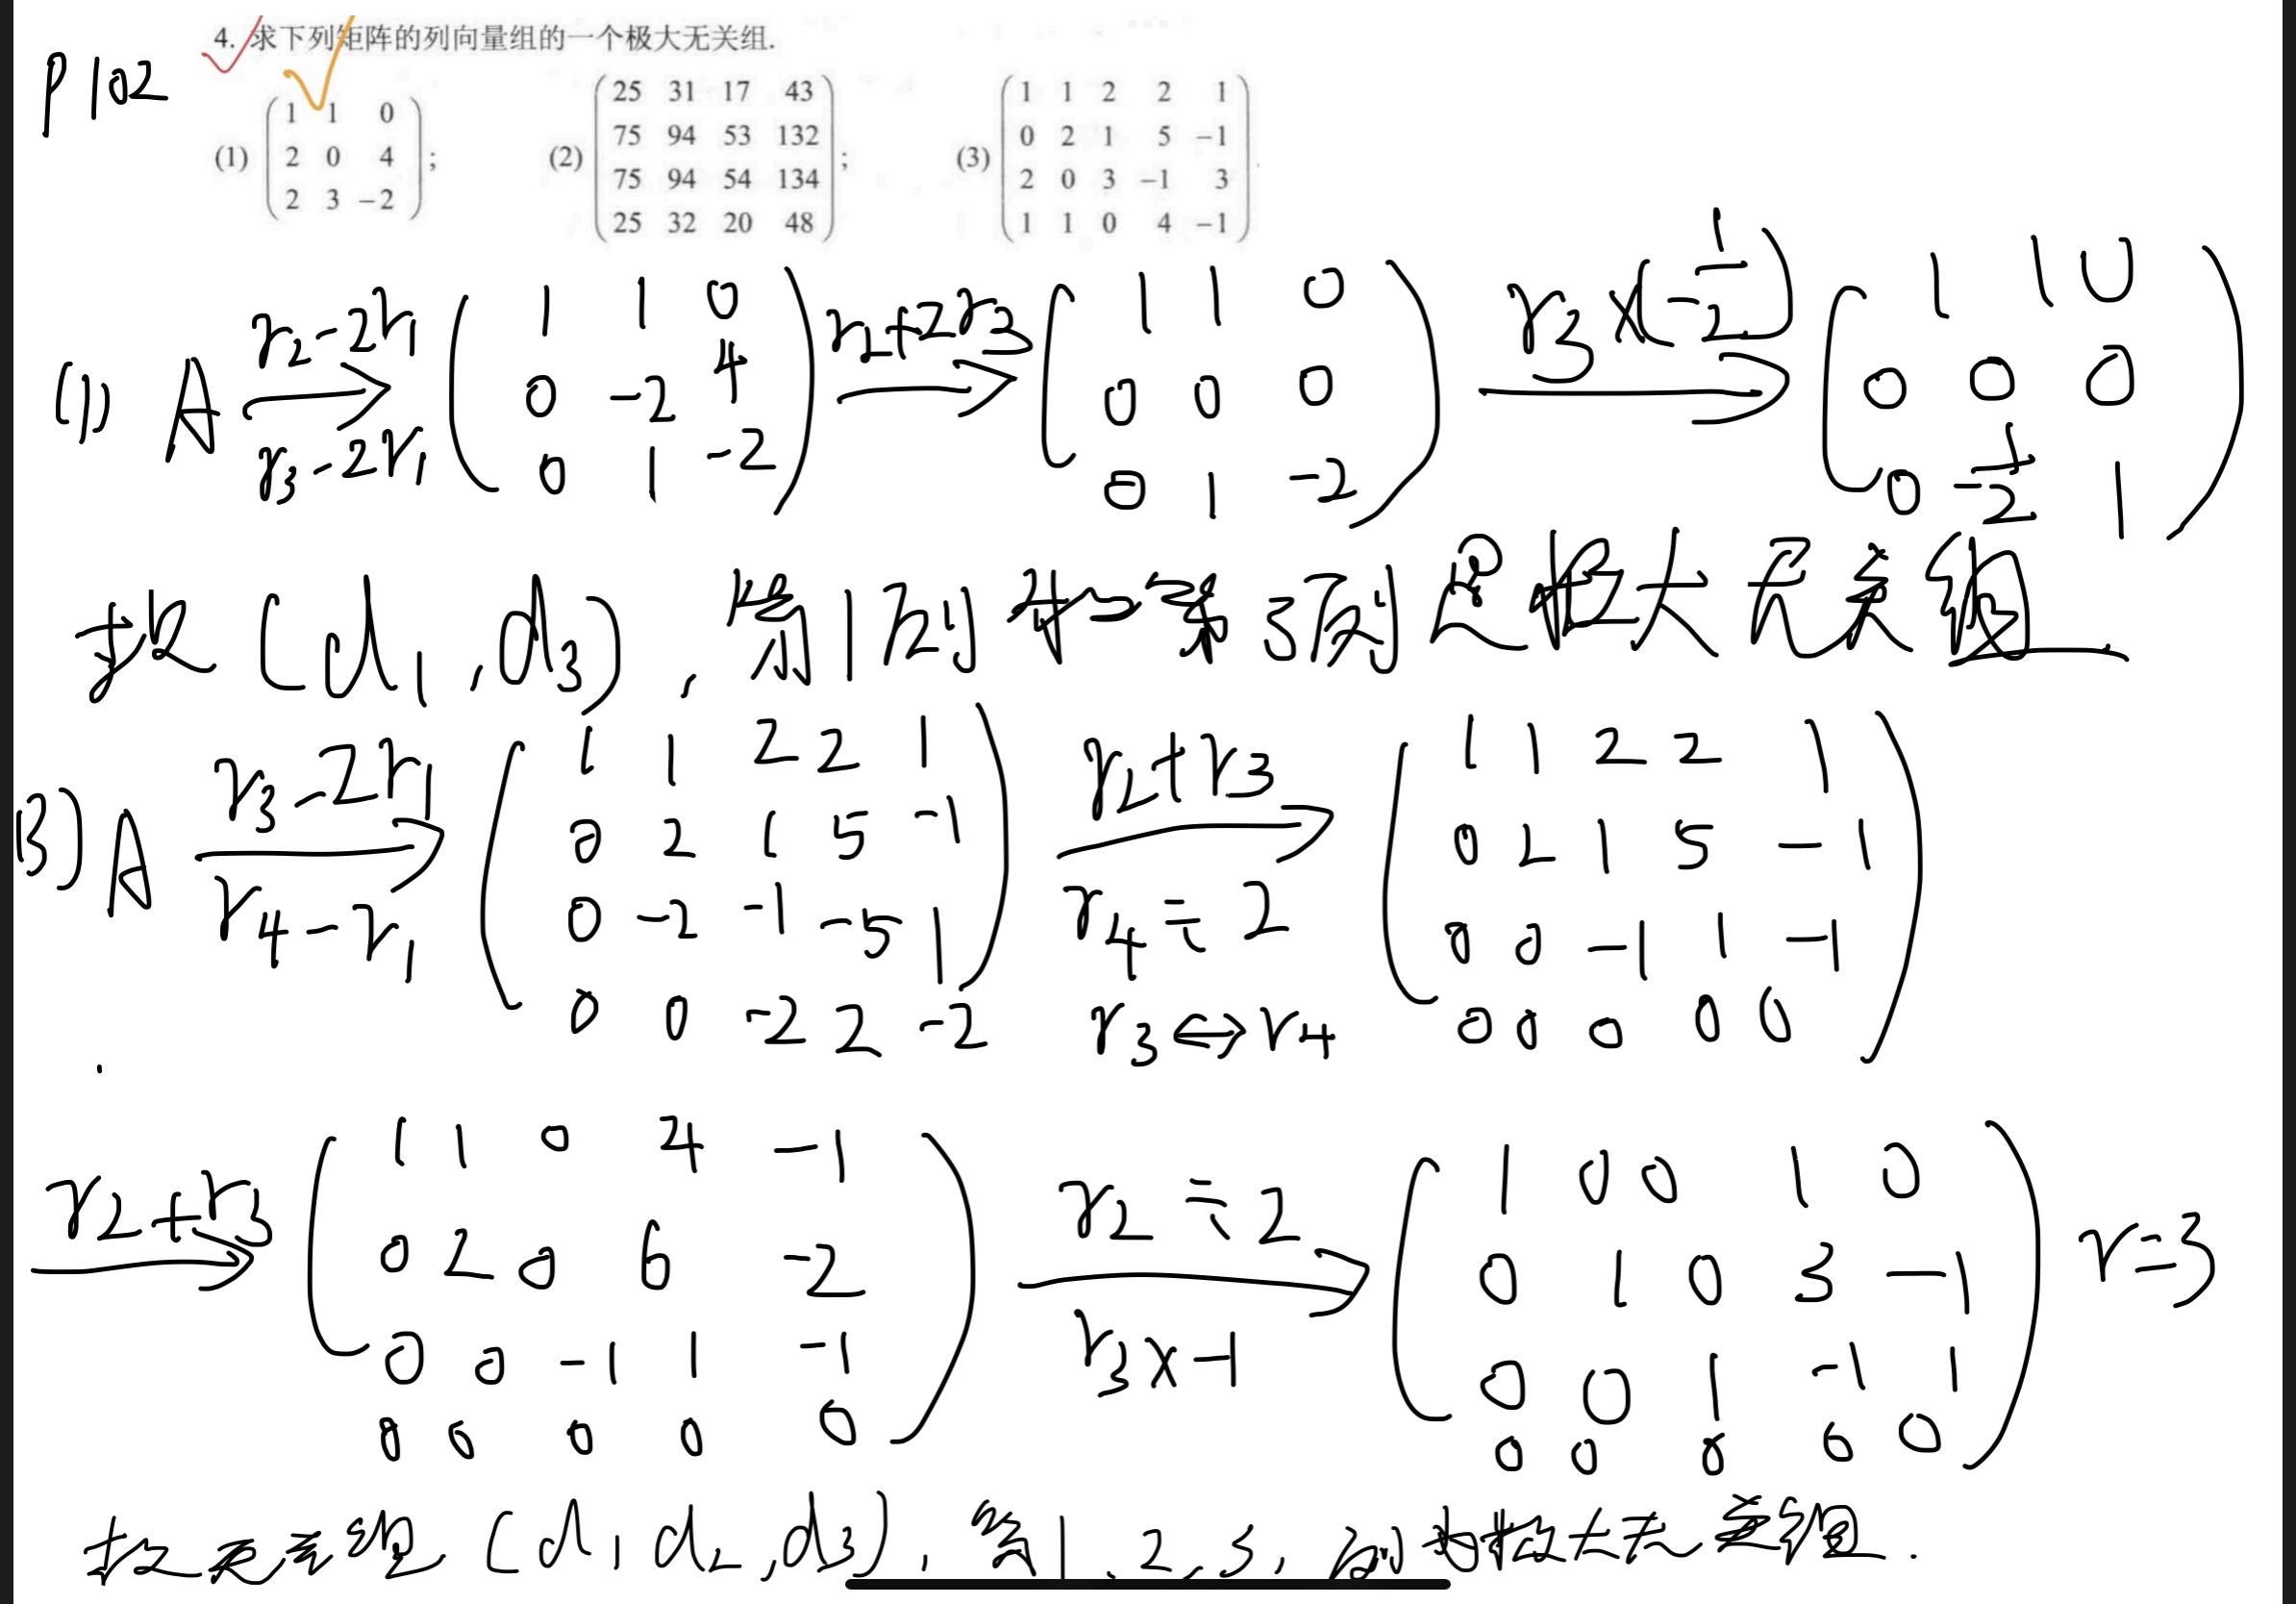 4. 求下列矩阵的列向量组的一个极大无关组.
P102
(1) ( 1 1 0
2 0 4
2 3 −2 ) ;
(2) ( 25 31 17 43
75 94 53 132
75 94 54 134
25 32 20 48 ) ;
(3) ( 1 1 2 2 1
0 2 1 5 −1
2 0 3 −1 3
1 1 0 4 −1 ) .
(1) A r2-2r1 r3-2r1 →
( 1 1 0
0 -2 4
0 1 -2 )
r2+2r3 →
( 1 1 0
0 0 0
0 1 -2 )
r3×(-1/2) →
( 1 1 0
0 0 0
0 -1/2 1 )
极 (α1,α3), 第1列和第3列是极大无关组
(3) A r3-2r1 r4-r1 →
( 1 1 2 2 1
0 2 1 5 -1
0 -2 -1 -5 1
0 0 -2 2 -2 )
r2+r3 → r4÷2 r3↔r4
( 1 1 2 2 1
0 2 1 5 -1
0 0 -1 1 -1
0 0 0 0 0 )
r2+r3 →
( 1 1 0 4 -1
0 2 0 6 -2
0 0 -1 1 -1
0 0 0 0 0 )
r2÷2 → r3×-1
( 1 0 0 1 0
0 1 0 3 -1
0 0 1 -1 1
0 0 0 0 0 ) r=3
极无关组 (α1 α2,α3), 第1、2、3, 列为极大无关组.